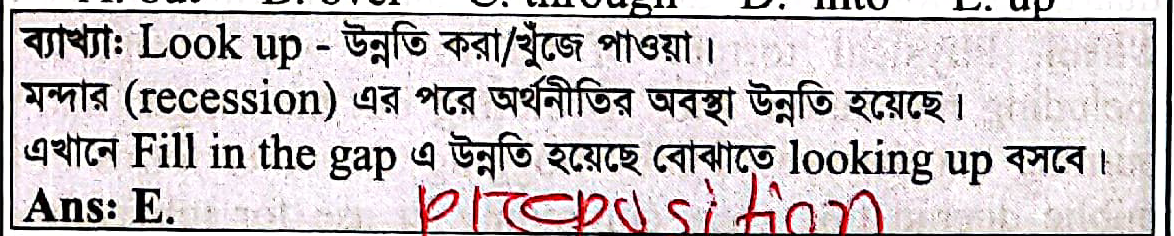 A. out B. over C. through D. into E. up
ব্যাখ্যাঃ Look up - উন্নতি করা/খুঁজে পাওয়া।
মন্দার (recession) এর পরে অর্থনীতির অবস্থা উন্নতি হয়েছে।
এখানে Fill in the gap এ উন্নতি হয়েছে বোঝাতে looking up বসবে।
Ans: E.
preposition